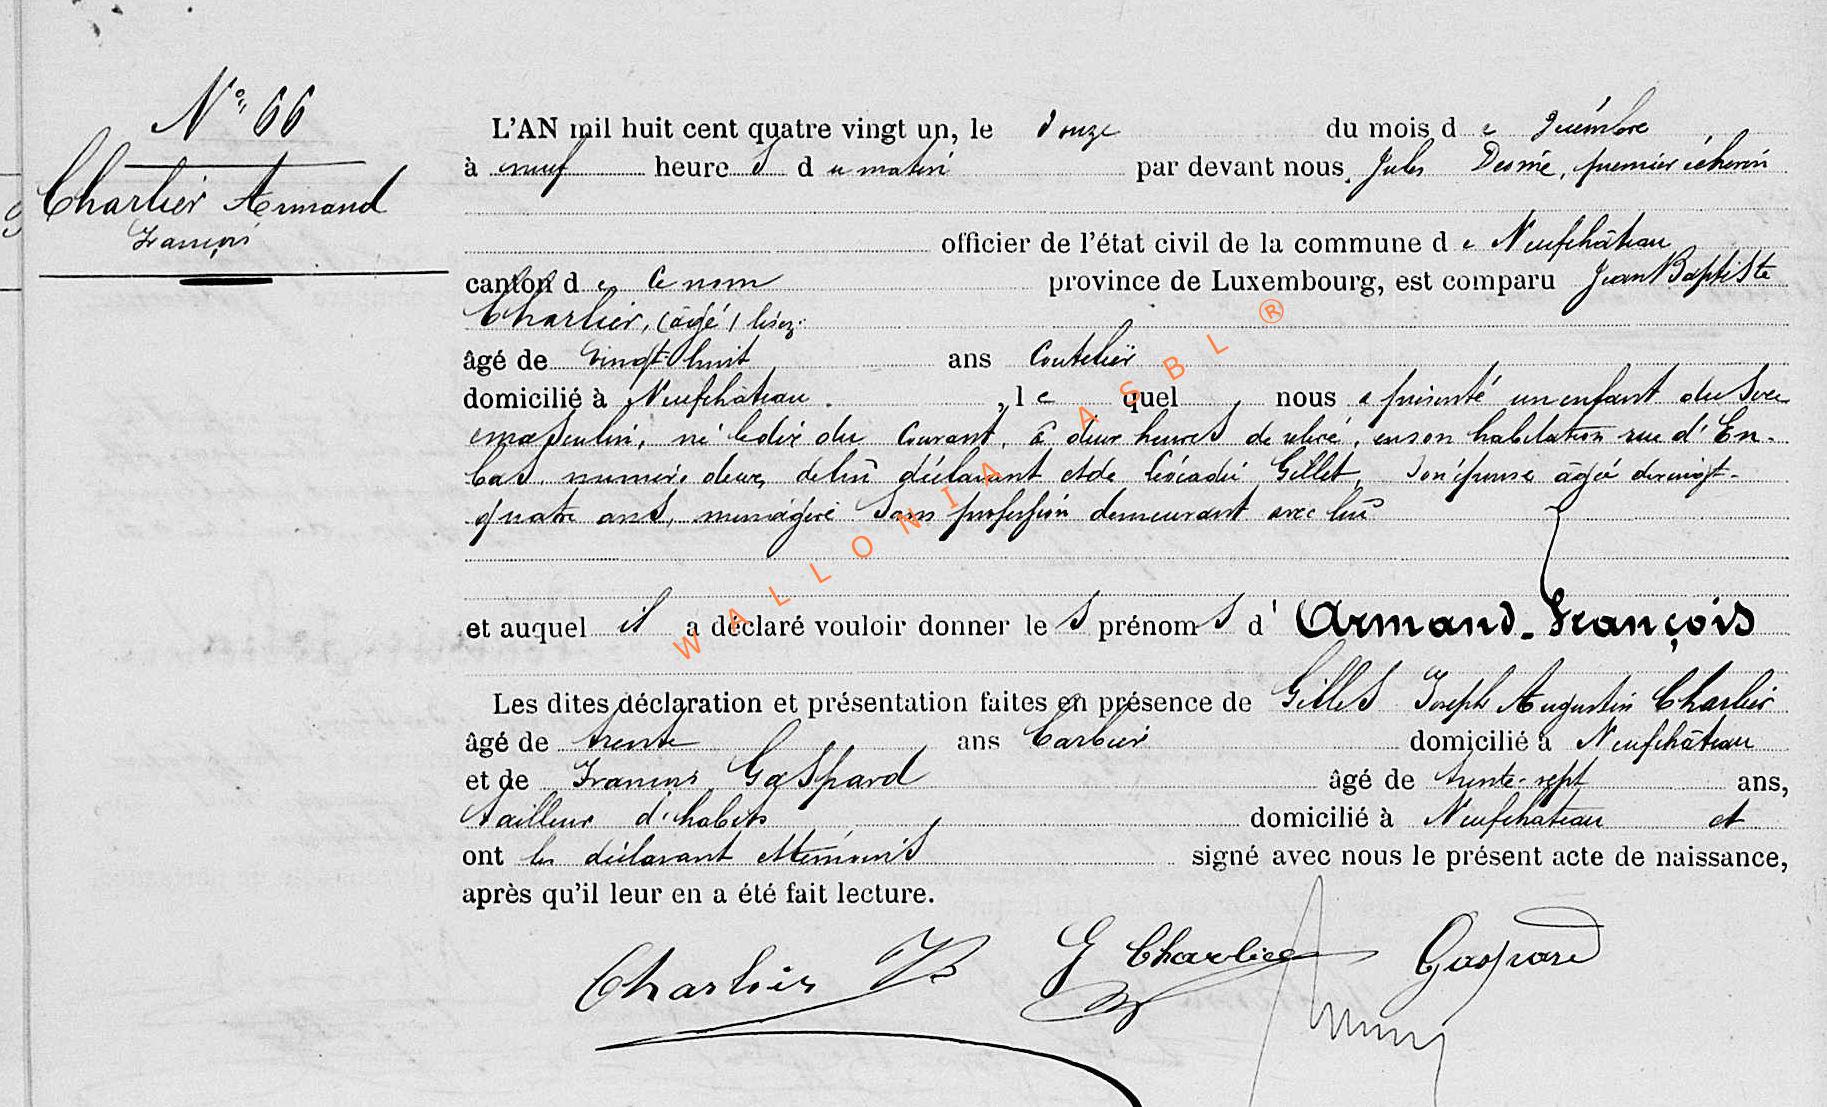 N° 66
Charlier Armand
François
L'AN mil huit cent quatre vingt un, le douze du mois de décembre
à neuf heures du matin par devant nous, Jules Desmé, premier échevin
officier de l'état civil de la commune de Neufchâteau
canton de ce nom province de Luxembourg, est comparu Jean Baptiste
Charlier, (âgé) lisez:
âgé de vingt huit ans Coutelier
domicilié à Neufchâteau, lequel nous a présenté un enfant du sexe
masculin, né le dix du courant, à deux heures de relevé, en son habitation rue d'En-
bas, numéro deux, de lui déclarant et de Léocadie Gillet, son épouse âgée de vingt-
quatre ans, ménagère sans profession demeurant avec lui
et auquel il a déclaré vouloir donner les prénoms d'Armand-François
Les dites déclaration et présentation faites en présence de Gilles Joseph Augustin Charlier
âgé de trente ans barbier domicilié à Neufchâteau
et de François Gaspard âgé de trente-sept ans,
tailleur d'habits domicilié à Neufchâteau et
ont les déclarant et témoins signé avec nous le présent acte de naissance,
après qu'il leur en a été fait lecture.
Charlier JB G Charlier Gaspard
WALLONIA ASBL ®